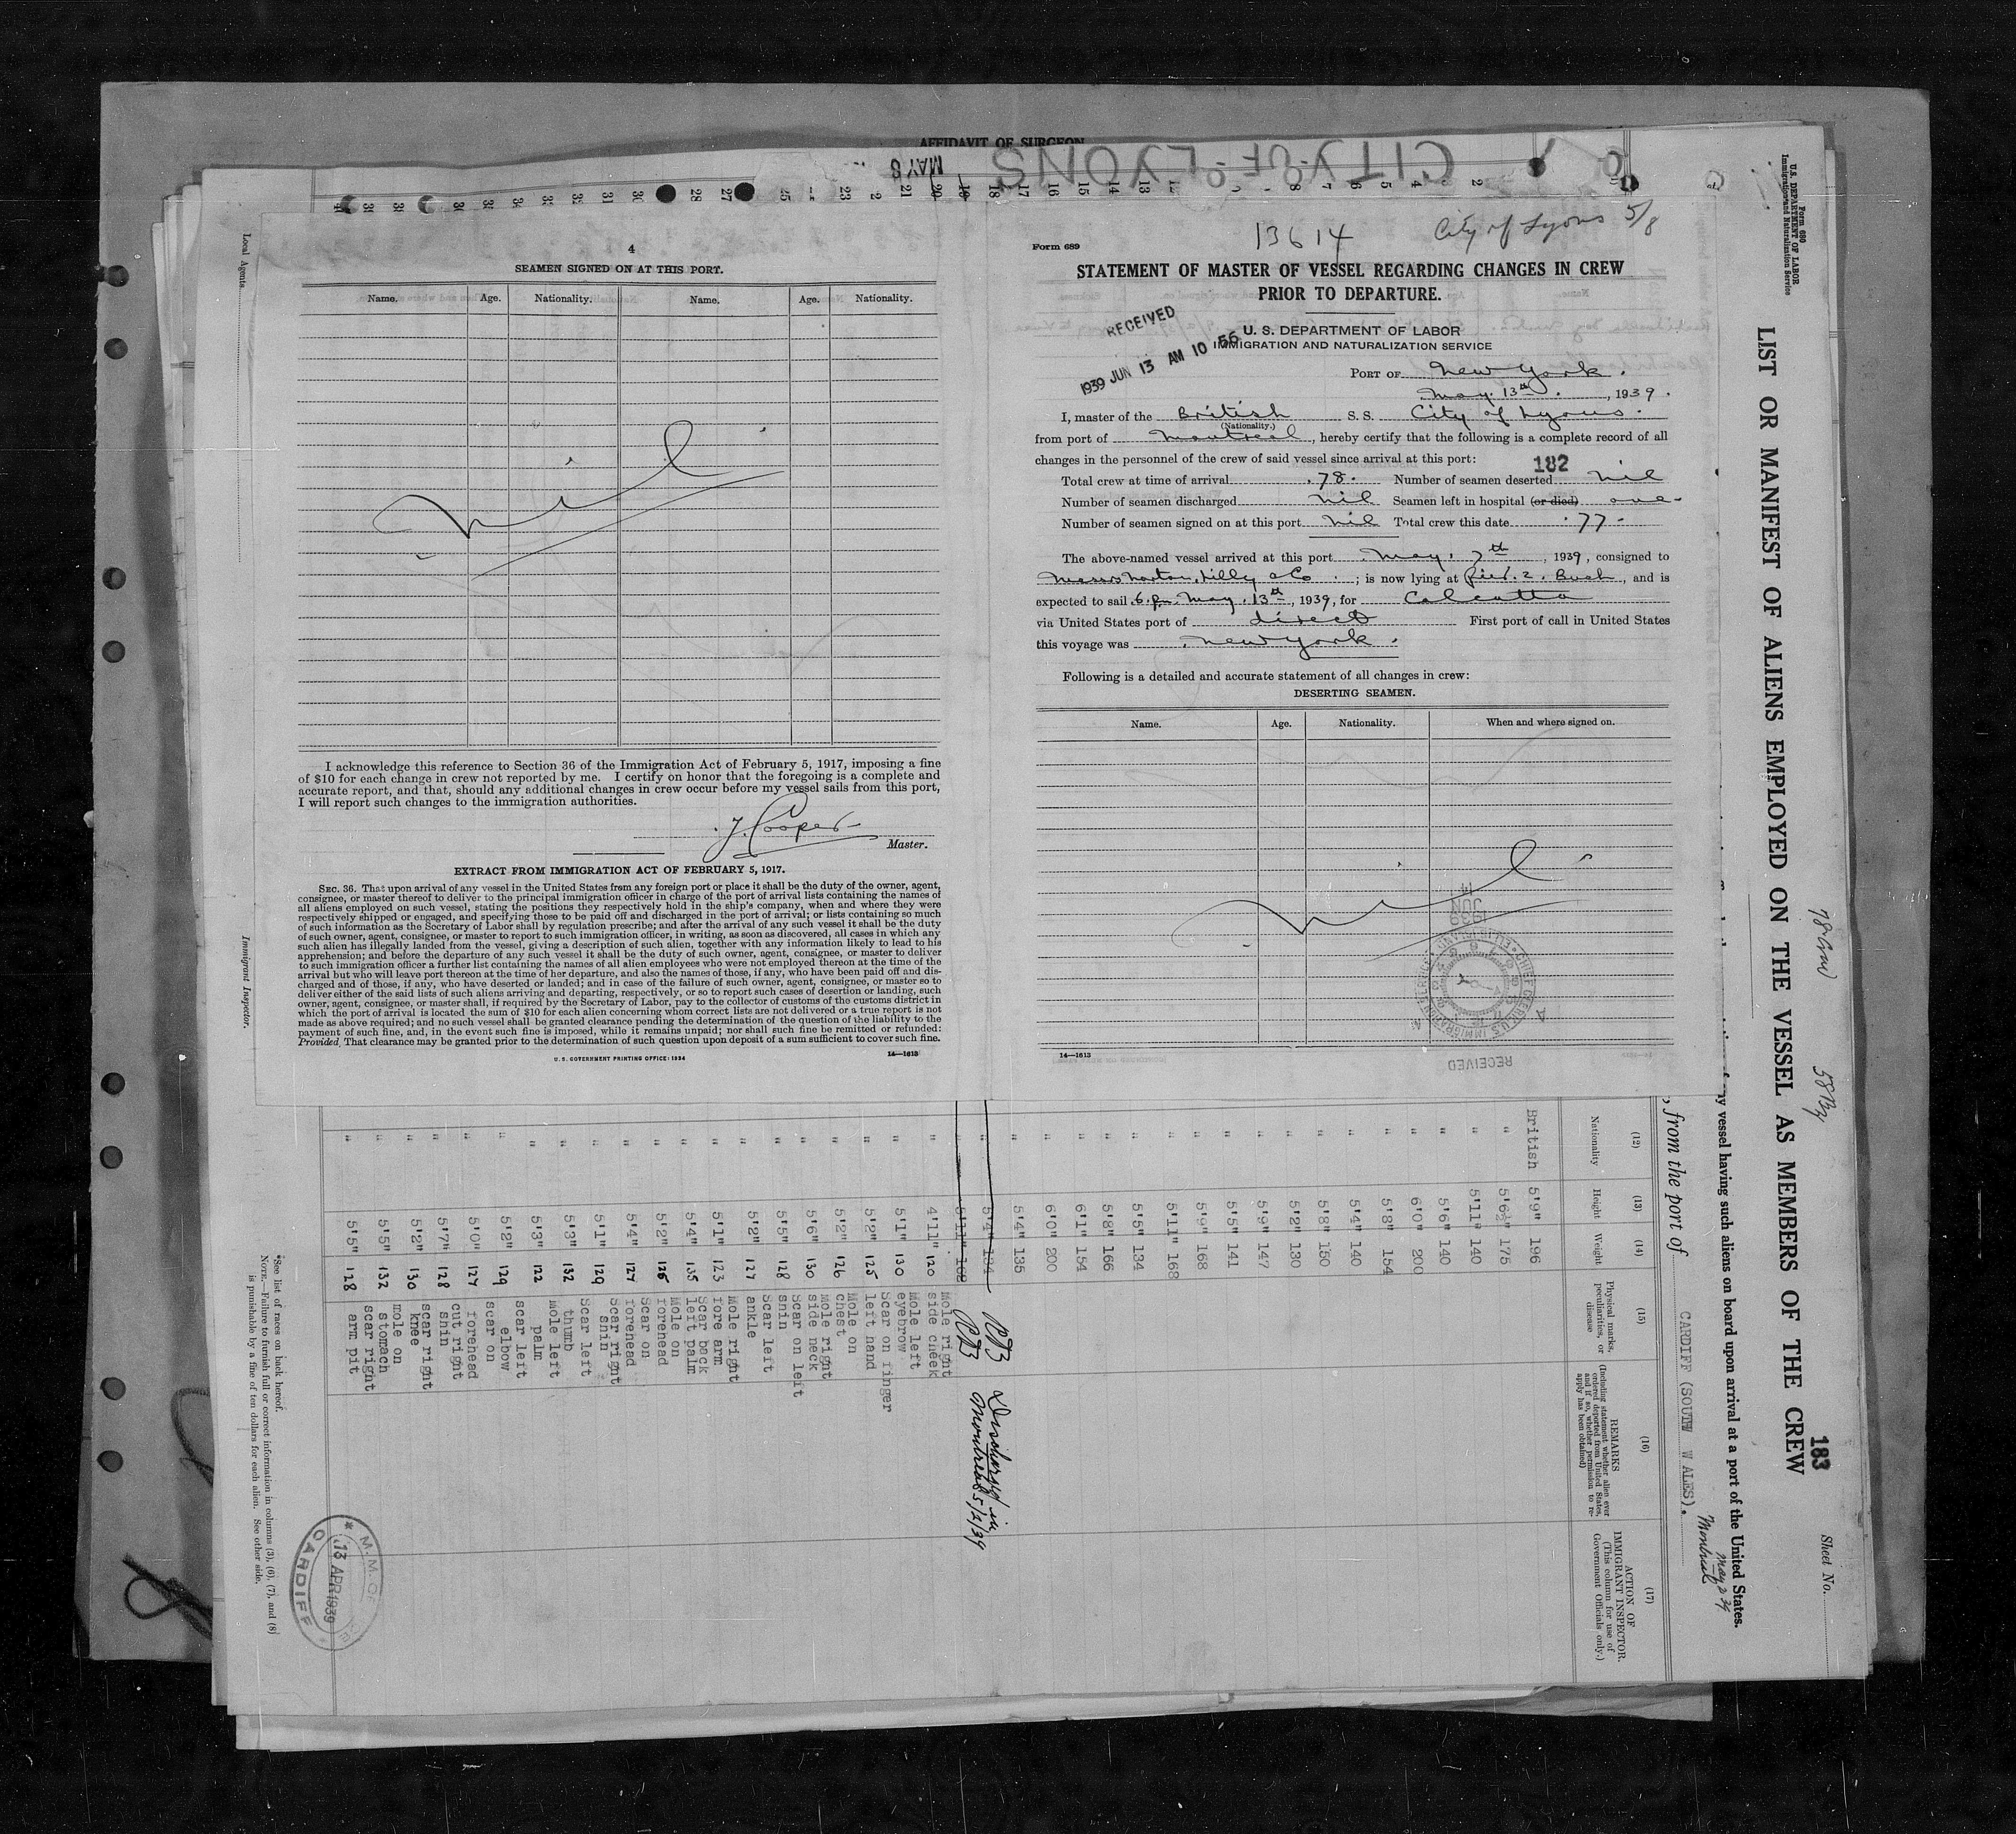 AFFIDAVIT OF SURGEON
CITY OF LYONS
MAY 8
4
SEAMEN SIGNED ON AT THIS PORT.
Name. Age. Nationality. Name. Age. Nationality.
nil
I acknowledge this reference to Section 36 of the Immigration Act of February 5, 1917, imposing a fine
of $10 for each change in crew not reported by me. I certify on honor that the foregoing is a complete and
accurate report, and that, should any additional changes in crew occur before my vessel sails from this port,
I will report such changes to the immigration authorities.
J. Cooper
Master.
EXTRACT FROM IMMIGRATION ACT OF FEBRUARY 5, 1917.
SEC. 36. That upon arrival of any vessel in the United States from any foreign port or place it shall be the duty of the owner, agent,
consignee, or master thereof to deliver to the principal immigration officer in charge of the port of arrival lists containing the names of
all aliens employed on such vessel, stating the positions they respectively hold in the ship's company, when and where they were
respectively shipped or engaged, and specifying those to be paid off and discharged in the port of arrival; or lists containing so much
of such information as the Secretary of Labor shall by regulation prescribe; and after the arrival of any such vessel it shall be the duty
of such owner, agent, consignee, or master to report to such immigration officer, in writing, as soon as discovered, all cases in which any
such alien has illegally landed from the vessel, giving a description of such alien, together with any information likely to lead to his
apprehension; and before the departure of any such vessel it shall be the duty of such owner, agent, consignee, or master to deliver
to such immigration officer a further list containing the names of all alien employees who were not employed thereon at the time of the
arrival but who will leave port thereon at the time of her departure, and also the names of those, if any, who have been paid off and dis-
charged and of those, if any, who have deserted or landed; and in case of the failure of such owner, agent, consignee, or master so to
deliver either of the said lists of such aliens arriving and departing, respectively, or so to report such cases of desertion or landing, such
owner, agent, consignee, or master shall, if required by the Secretary of Labor, pay to the collector of customs of the customs district in
which the port of arrival is located the sum of $10 for each alien concerning whom correct lists are not delivered or a true report is not
made as above required; and no such vessel shall be granted clearance pending the determination of the question of the liability to the
payment of such fine, and, in the event such fine is imposed, while it remains unpaid; nor shall such fine be remitted or refunded:
Provided, That clearance may be granted prior to the determination of such question upon deposit of a sum sufficient to cover such fine.
U. S. GOVERNMENT PRINTING OFFICE: 1934
14—1613
13614 City of Lyons 5/8
Form 689
STATEMENT OF MASTER OF VESSEL REGARDING CHANGES IN CREW
PRIOR TO DEPARTURE.
RECEIVED
1939 JUN 13 AM 10 56
U. S. DEPARTMENT OF LABOR
IMMIGRATION AND NATURALIZATION SERVICE
PORT OF New York.
May 13th, 1939.
I, master of the British S. S. City of Lyons.
(Nationality.)
from port of Montreal, hereby certify that the following is a complete record of all
changes in the personnel of the crew of said vessel since arrival at this port:
182
Total crew at time of arrival 78. Number of seamen deserted nil
Number of seamen discharged nil Seamen left in hospital (or died) one
Number of seamen signed on at this port nil Total crew this date 77
The above-named vessel arrived at this port May. 7th, 1939, consigned to
Messrs Norton, Lilly & Co.; is now lying at Pier. 2. Bush, and is
expected to sail 6. pm. May. 13th, 1939, for Calcutta
via United States port of direct First port of call in United States
this voyage was New York.
Following is a detailed and accurate statement of all changes in crew:
DESERTING SEAMEN.
Name. Age. Nationality. When and where signed on.
nil
14—1613
RECEIVED
Form 680
U.S. DEPARTMENT OF LABOR
Immigration and Naturalization Service
LIST OR MANIFEST OF ALIENS EMPLOYED ON THE VESSEL AS MEMBERS OF THE CREW
183
Sheet No.
ny vessel having such aliens on board upon arrival at a port of the United States.
, from the port of CARDIFF (SOUTH WALES).
Montreal May 2 39
(12) (13) (14) (15) (16) (17)
Nationality Height Weight Physical marks, peculiarities, or disease
REMARKS
(Including statement whether alien ever ordered deported from United States, and if so, whether permission to re-apply has been obtained)
ACTION OF IMMIGRANT INSPECTOR.
(This column for use of Government Officials only.)
British 5'9" 196
" 5'6½" 175
" 5'11" 140
" 5'6" 140
" 6'0" 200
" 5'8" 154
" 5'4" 140
" 5'8" 150
" 5'2" 130
" 5'9" 147
" 5'5" 141
" 5'9" 168
" 5'11" 168
" 5'5" 134
" 5'8" 166
" 6'1" 154
" 6'0" 200
" 5'4" 135
" 5'4" 134
" 5'11" 162
Discharged in
Montreal 5/2/39
" 4'11" 120 Mole right side cheek
" 5'1" 130 Mole left eyebrow
" 5'2" 125 Scar on finger left hand
" 5'2" 126 Mole on chest
" 5'6" 130 Mole right side neck
" 5'5" 128 Scar on left shin
" 5'2" 127 Scar left ankle
" 5'1" 123 Mole right fore arm
" 5'4" 135 Scar back left palm
" 5'2" 126 Mole on forehead
" 5'4" 127 Scar on forehead
" 5'1" 129 Scar right shin
" 5'3" 132 Scar left thumb
" 5'3" 122 mole left palm
" 5'2" 129 scar left elbow
" 5'0" 127 scar on forehead
" 5'7" 128 cut right shin
" 5'2" 130 scar right knee
" 5'5" 132 mole on stomach
" 5'5" 128 scar right arm pit
*See list of races on back hereof.
NOTE.—Failure to furnish full or correct information in columns (3), (6), (7), and (8)
is punishable by a fine of ten dollars for each alien. See other side.
13 APR 1939
CARDIFF
Local Agents
Immigrant Inspector.